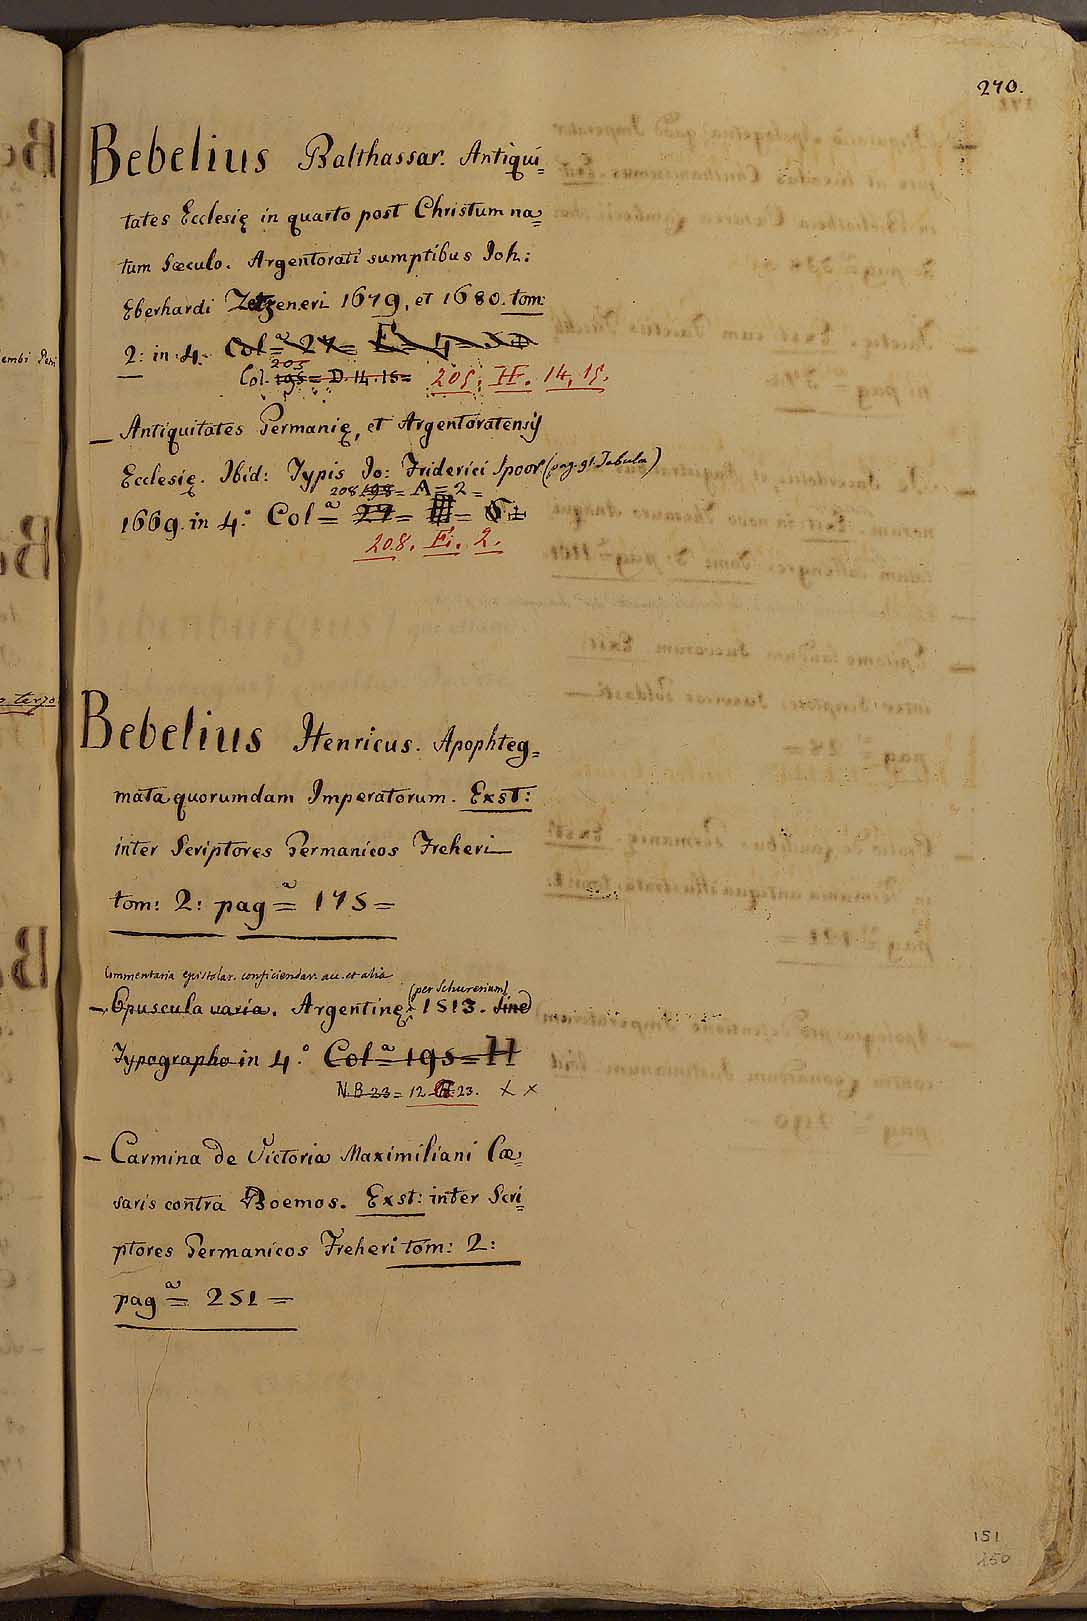 270.
Bebelius Balthassar. Antiqui=
tates Ecclesię in quarto post Christum na=
tum Sæculo. Argentorati sumptibus Joh:
Eberhardi Zetzeneri 1679, et 1680. tom:
2: in 4. Col.ª 27=
205
Col. 195= D. 14. 15= 205. H. 14, 15.
— Antiquitates Germanię, et Argentoratensis
Ecclesię. Ibid: Typis Jo: Friderici Spoor (pag. 91 Tabula)
208 198= A= 2=
1669. in 4.º Col=ª 27=
208. Fi. 2.
Bebelius Henricus. Apophteg=
mata quorumdam Imperatorum. Exst:
inter Scriptores Germanicos Freheri
tom: 2: pag=ª 175=
Commentaria epistolar. conficiendar. ac. et alia
(per Schurerium)
— Opuscula varia. Argentinę 1513. sine
Typographo in 4.º Col=ª 195= H
N B 23= 12 23. X X
— Carmina de Victoria Maximiliani Cæ=
saris contra Boemos. Exst: inter Scri=
ptores Germanicos Freheri tom: 2:
pag=ª 251=
151
150